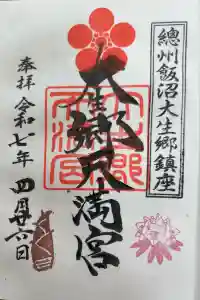 總州飯沼大生郷鎮座
大生郷天満宮
奉拝
令和七年
四月廿六日